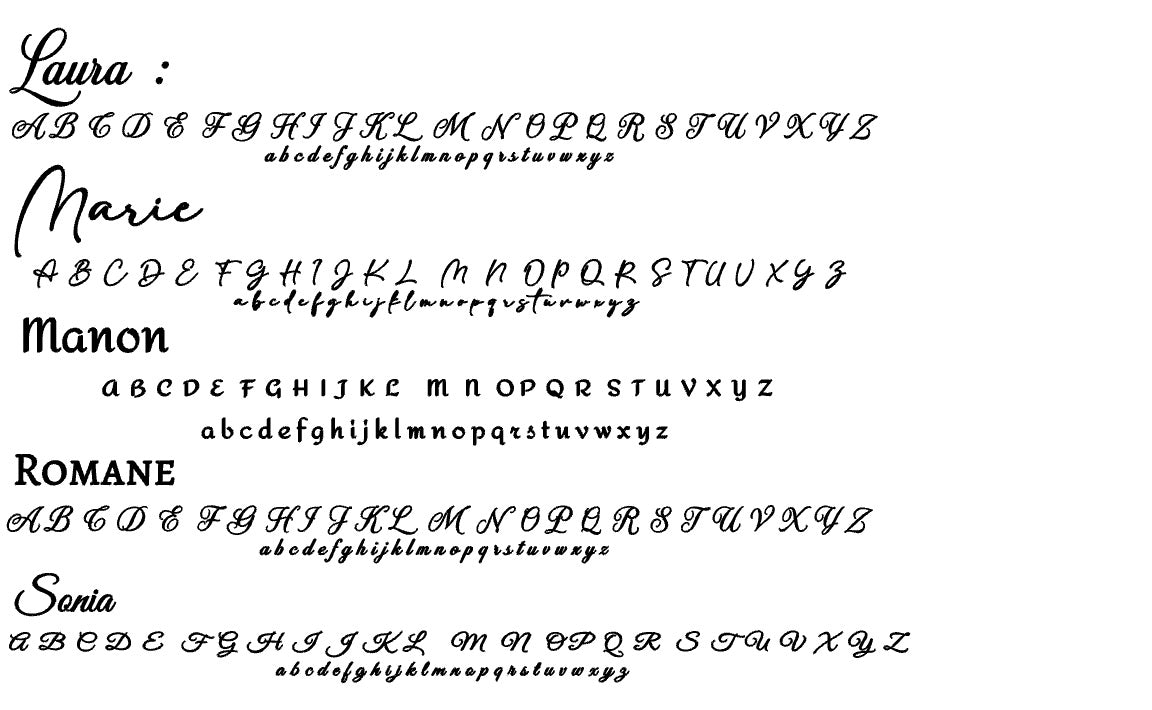 Laura :
A B C D E F G H I J K L M N O P Q R S T U V X Y Z
a b c d e f g h i j k l m n o p q r s t u v w x y z
Marie
A B C D E F G H I J K L M N O P Q R S T U V X Y Z
a b c d e f g h i j k l m n o p q r s t u v w x y z
Manon
A B C D E F G H I J K L M N O P Q R S T U V X Y Z
a b c d e f g h i j k l m n o p q r s t u v w x y z
ROMANE
A B C D E F G H I J K L M N O P Q R S T U V X Y Z
a b c d e f g h i j k l m n o p q r s t u v w x y z
Sonia
A B C D E F G H I J K L M N O P Q R S T U V X Y Z
a b c d e f g h i j k l m n o p q r s t u v w x y z